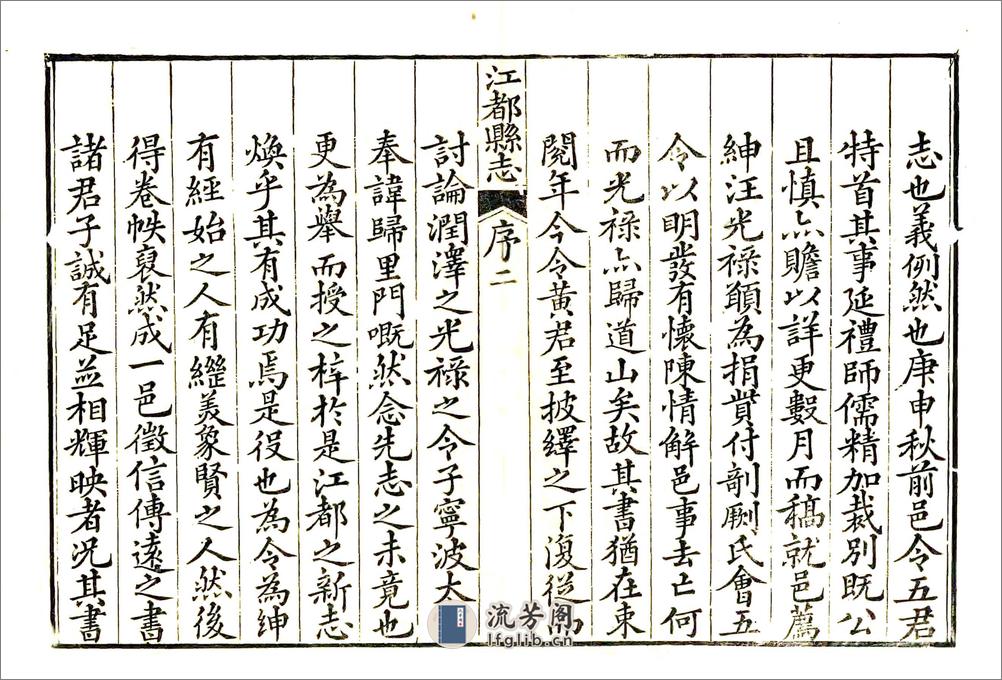 志也義例然也庚申秋前邑令五君
特首其事延禮師儒精加裁別既公
且慎亦贍以詳更數月而稿就邑薦
紳汪光祿願為捐貲付剞劂氏會五
令以明發有懷陳情解邑事去亡何
而光祿亦歸道山矣故其書猶在東
閱年今令黃君至披繹之下復從
江都縣志 序二
討論潤澤之光祿之令子寧波太
奉諱歸里門嘅然念先志之未竟也
更為舉而授之梓於是江都之新志
煥乎其有成功焉是役也為令為紳
有經始之人有繼美象賢之人然後
得卷帙裒然成一邑徵信傳遠之書
諸君子誠有足並相輝映者況其書
流芳阁
lfglib.cn